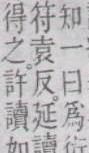 知一曰爲衍
符袁反延讀
得之許讀如